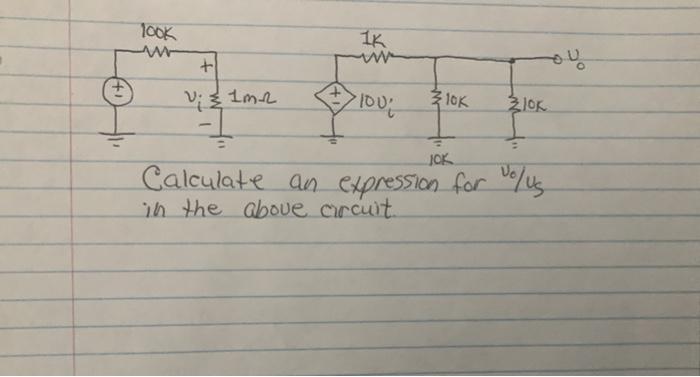 100K
1K
+
υo
+
-
υi
1mΩ
+
-
10υi
10K
10K
-
10K
Calculate an expression for υo/υs
in the above circuit.